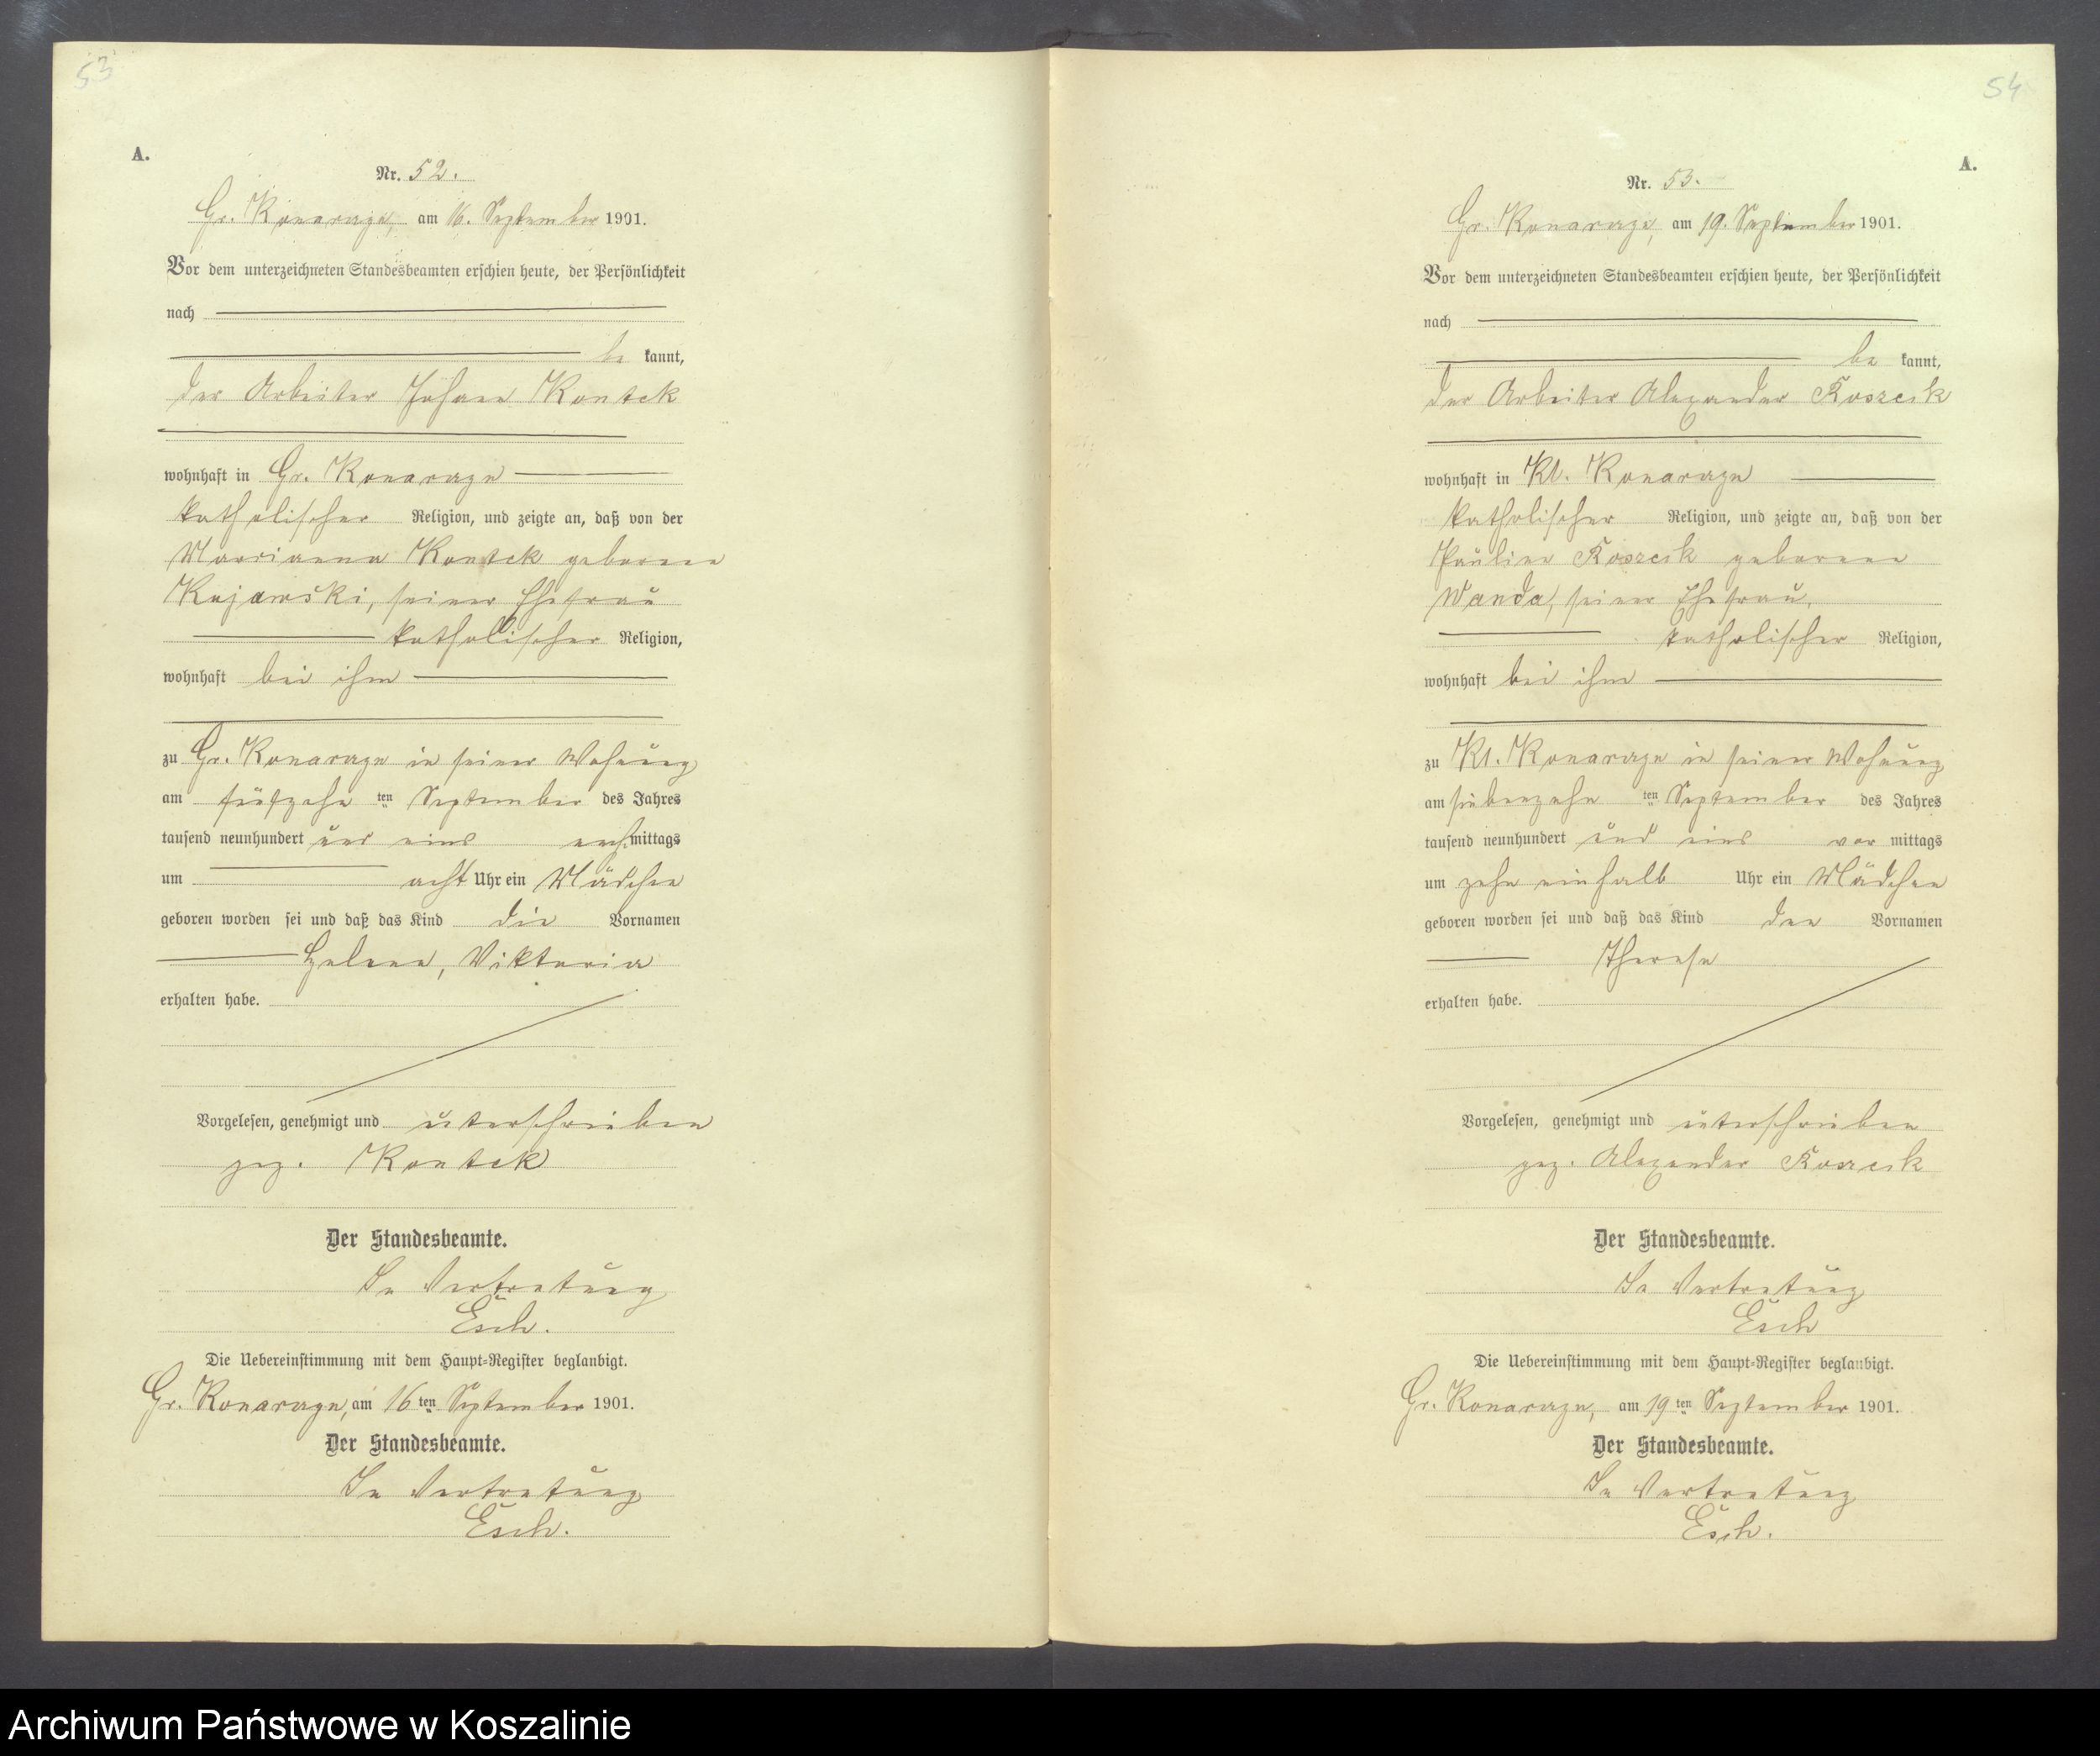 53
A.
Nr. 52.
Gr. Konarzyn, am 16. September 1901.
Vor dem unterzeichneten Standesbeamten erschien heute, der Persönlichkeit
nach
be kannt,
der Arbeiter Johann Kontek
wohnhaft in Gr. Konarzyn
katholischer Religion, und zeigte an, daß von der
Marianna Kontek geborene
Kujawski, seiner Ehefrau
katholischer Religion,
wohnhaft bei ihm
zu Gr. Konarzyn in seiner Wohnung
am fünfzehn ten September des Jahres
tausend neunhundert und eins nach mittags
um acht Uhr ein Mädchen
geboren worden sei und daß das Kind die Vornamen
Helene, Viktoria
erhalten habe.
Vorgelesen, genehmigt und unterschrieben
gez. Kontek
Der Standesbeamte.
In Vertretung
Esch.
Die Uebereinstimmung mit dem Haupt-Register beglaubigt.
Gr. Konarzyn, am 16 ten September 1901.
Der Standesbeamte.
In Vertretung
Esch.
54
A.
Nr. 53.
Gr. Konarzyn, am 19. September 1901.
Vor dem unterzeichneten Standesbeamten erschien heute, der Persönlichkeit
nach
be kannt,
der Arbeiter Alexander
wohnhaft in Kl. Konarzyn
katholischer Religion, und zeigte an, daß von der
Pauline geborene
Wanda, seiner Ehefrau,
katholischer Religion,
wohnhaft bei ihm
zu Kl. Konarzyn in seiner Wohnung
am siebenzehn ten September des Jahres
tausend neunhundert und eins vor mittags
um zehn einhalb Uhr ein Mädchen
geboren worden sei und daß das Kind den Vornamen
Therese
erhalten habe.
Vorgelesen, genehmigt und unterschrieben
gez. Alexander
Der Standesbeamte.
In Vertretung
Esch
Die Uebereinstimmung mit dem Haupt-Register beglaubigt.
Gr. Konarzyn, am 19 ten September 1901.
Der Standesbeamte.
In Vertretung
Esch.
Archiwum Państwowe w Koszalinie